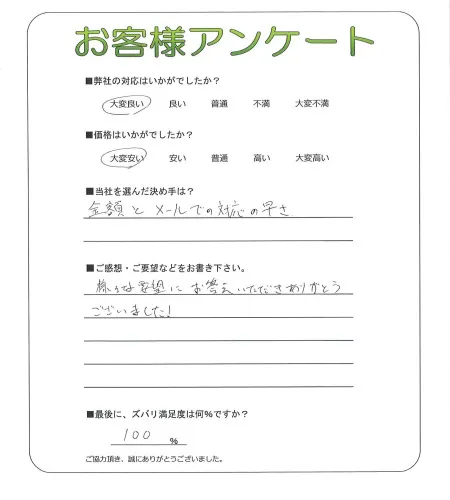 お客様アンケート
■弊社の対応はいかがでしたか？
大変良い 良い 普通 不満 大変不満
■価格はいかがでしたか？
大変安い 安い 普通 高い 大変高い
■当社を選んだ決め手は？
金額とメールでの対応の早さ
■ご感想・ご要望などをお書き下さい。
様々な要望にお答えいただきありがとう
ございました!
■最後に、ズバリ満足度は何%ですか？
100 %
ご協力頂き、誠にありがとうございました。